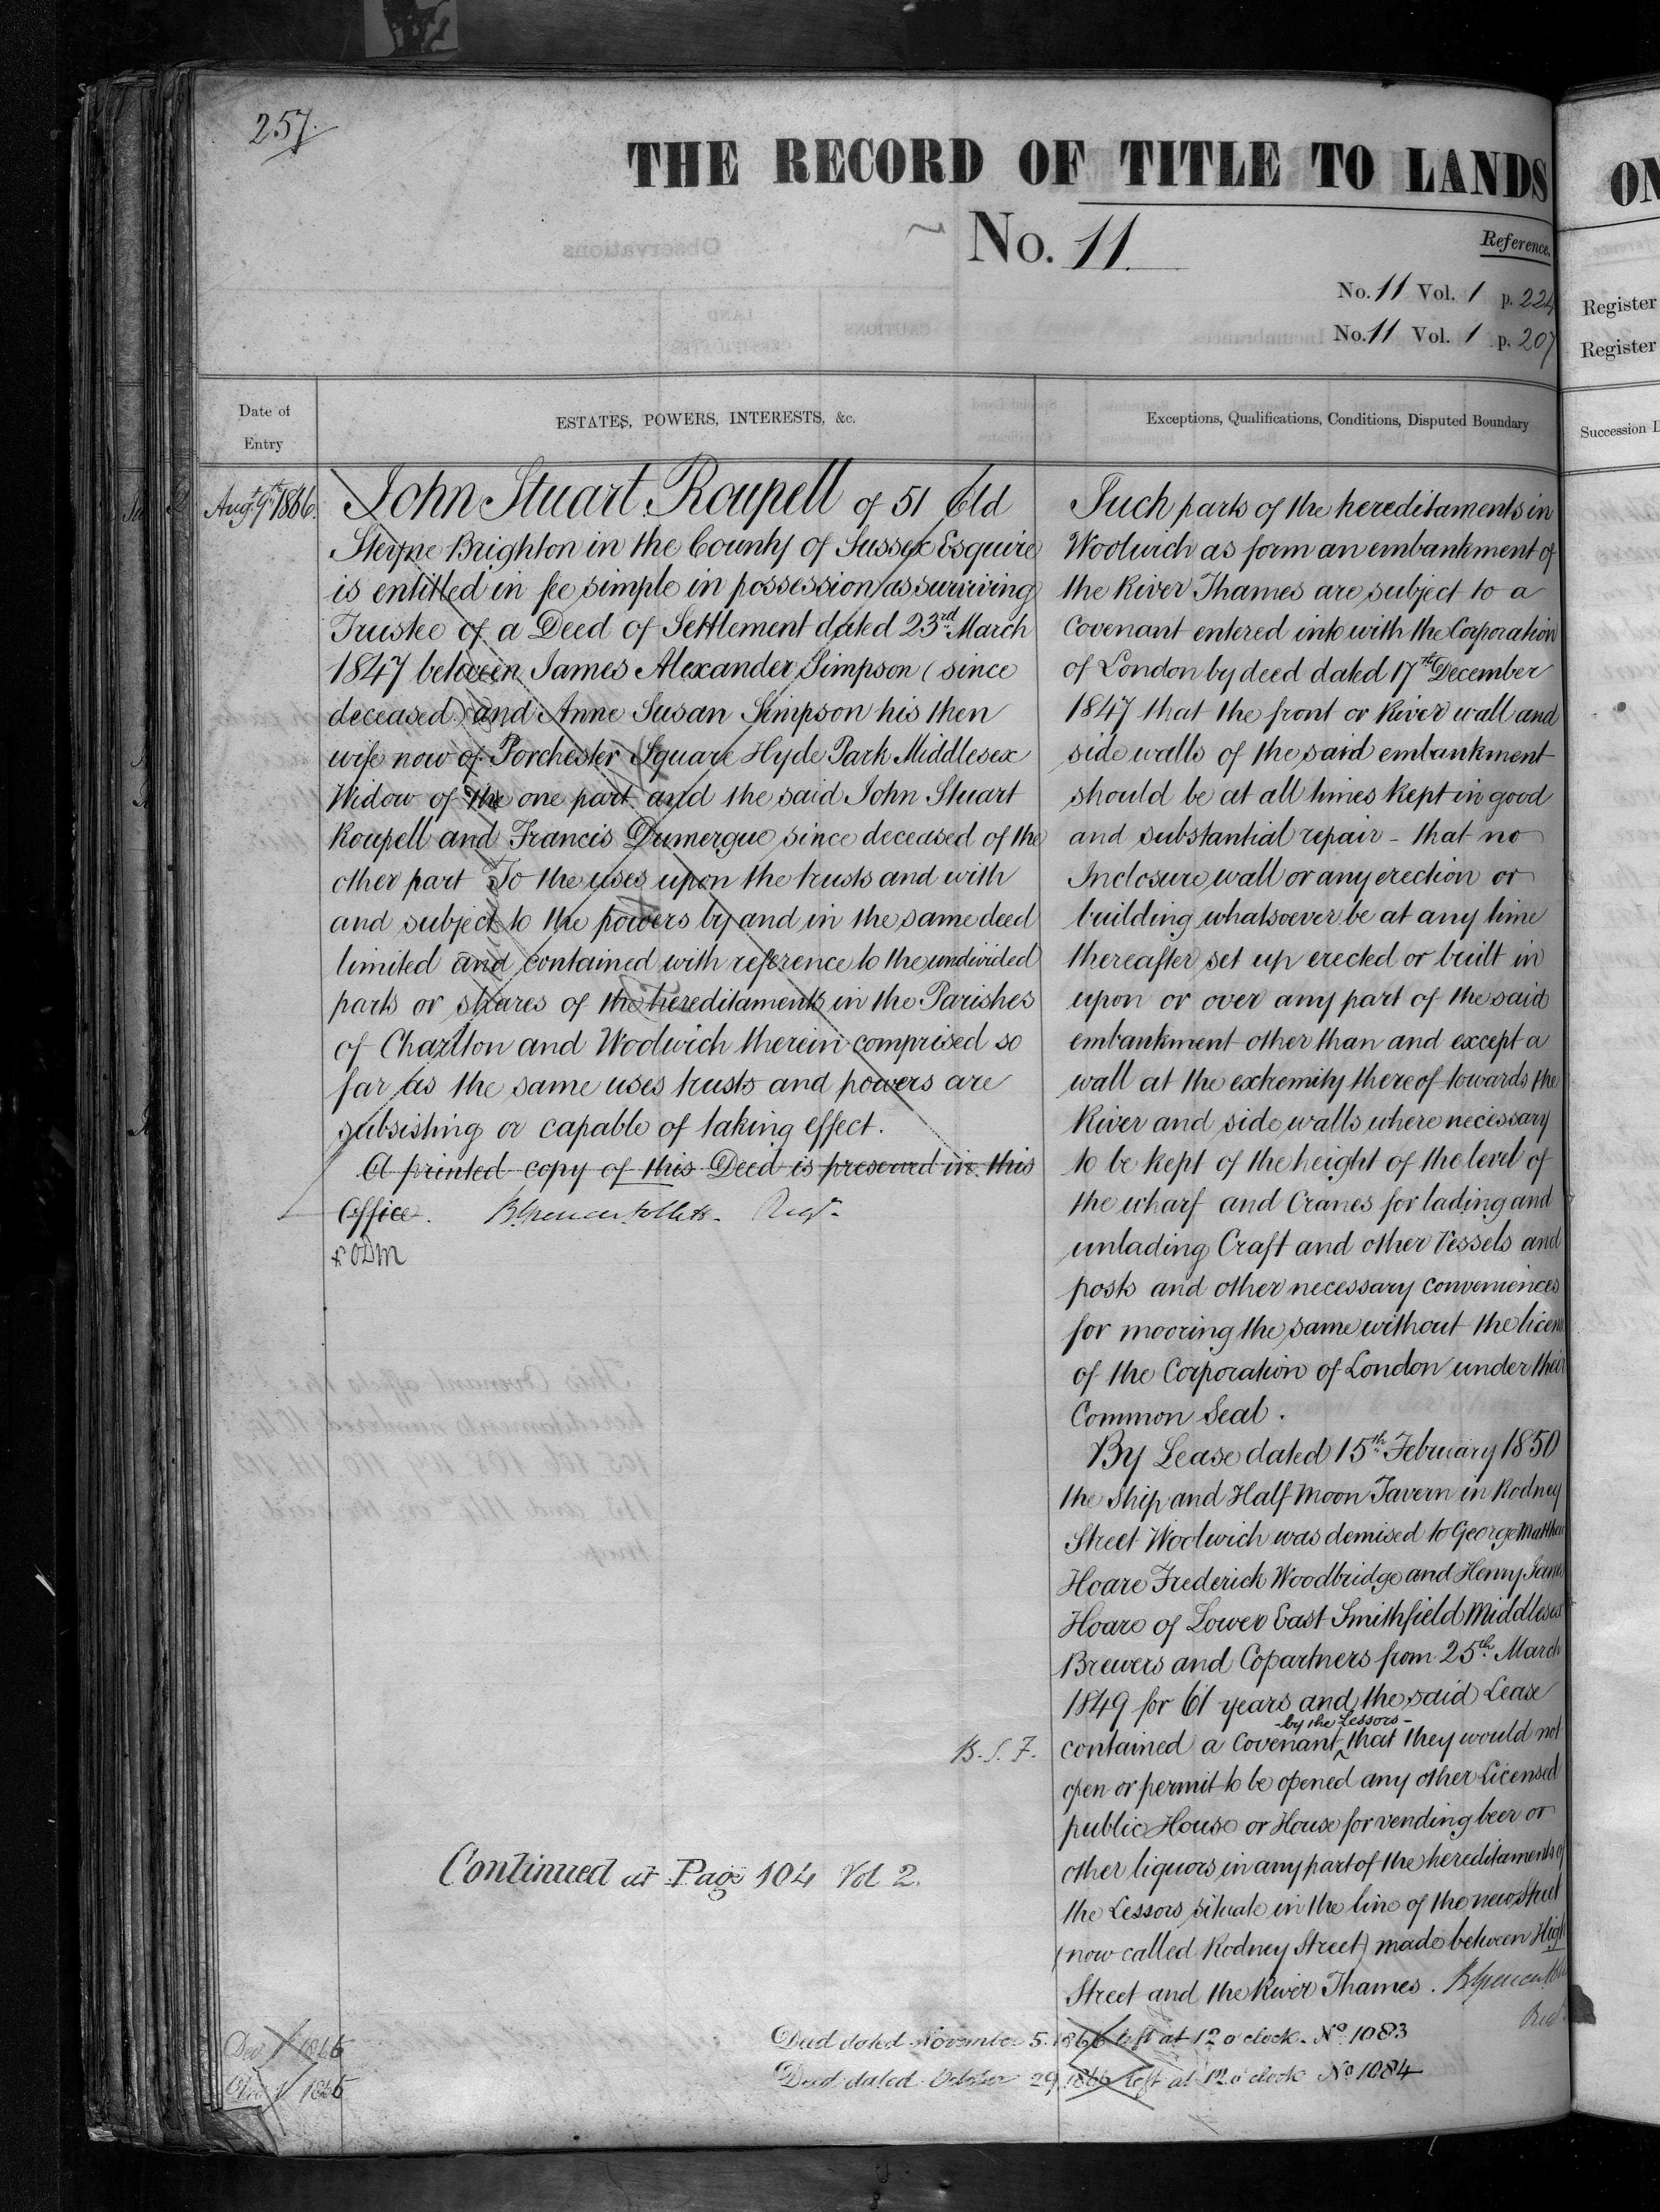 257.
THE RECORD OF TITLE TO LANDS
No. 11.
Reference.
No. 11 Vol. 1 p. 224
No. 11 Vol. 1 p. 207
Date of
Entry
ESTATES, POWERS, INTERESTS, &c.
Exceptions, Qualifications, Conditions, Disputed Boundary
Augt. 9th 1866.
John Stuart Roupell of 51 Old
Steyne Brighton in the County of Sussex Esquire
is entitled in fee simple in possession as surviving
Trustee of a Deed of Settlement dated 23rd March
1847 between James Alexander Simpson (since
deceased) and Anne Susan Simpson his then
wife now of Porchester Square Hyde Park Middlesex
Widow of the one part and the said John Stuart
Roupell and Francis Dumergue since deceased of the
other part To the uses upon the trusts and with
and subject to the powers by and in the same deed
limited and contained with reference to the undivided
parts or shares of the hereditaments in the Parishes
of Charlton and Woolwich therein comprised so
far as the same uses trusts and powers are
subsisting or capable of taking effect.
A printed copy of this Deed is preserved in this
Office. Regr.
Continued at Page 104 Vol 2.
Such parts of the hereditaments in
Woolwich as form an embankment of
the River Thames are subject to a
Covenant entered into with the Corporation
of London by deed dated 17th December
1847 that the front or River wall and
side walls of the said embankment
should be at all times kept in good
and substantial repair - that no
Inclosure wall or any erection or
building whatsoever be at any time
thereafter set up erected or built in
upon or over any part of the said
embankment other than and except a
wall at the extremity thereof towards the
River and side walls where necessary
to be kept of the height of the level of
the wharf and Cranes for lading and
unlading Craft and other Vessels and
posts and other necessary conveniences
for mooring the same without the licen
of the Corporation of London under their
Common Seal.
By Lease dated 15th February 1850
the Ship and Half Moon Tavern in Rodney
Street Woolwich was demised to George Matthew
Hoare Frederick Woodbridge and Henry James
Hoare of Lower East Smithfield Middlesex
Brewers and Copartners from 25th March
1849 for 61 years and the said Lease
- by the Lessors -
B.S.F. contained a Covenant that they would not
open or permit to be opened any other Licensed
public House or House for vending beer or
other liquors in any part of the hereditaments of
the Lessors situate in the line of the new Street
(now called Rodney Street) made between High
Street and the River Thames.
Dec 1 1866 Deed dated November 5. 1866 left at 12 o'clock. No 1083
Dec 1 1866 Deed dated October 29. 1866 left at 12 o'clock No 1084
ON
Register
Register
Succession D